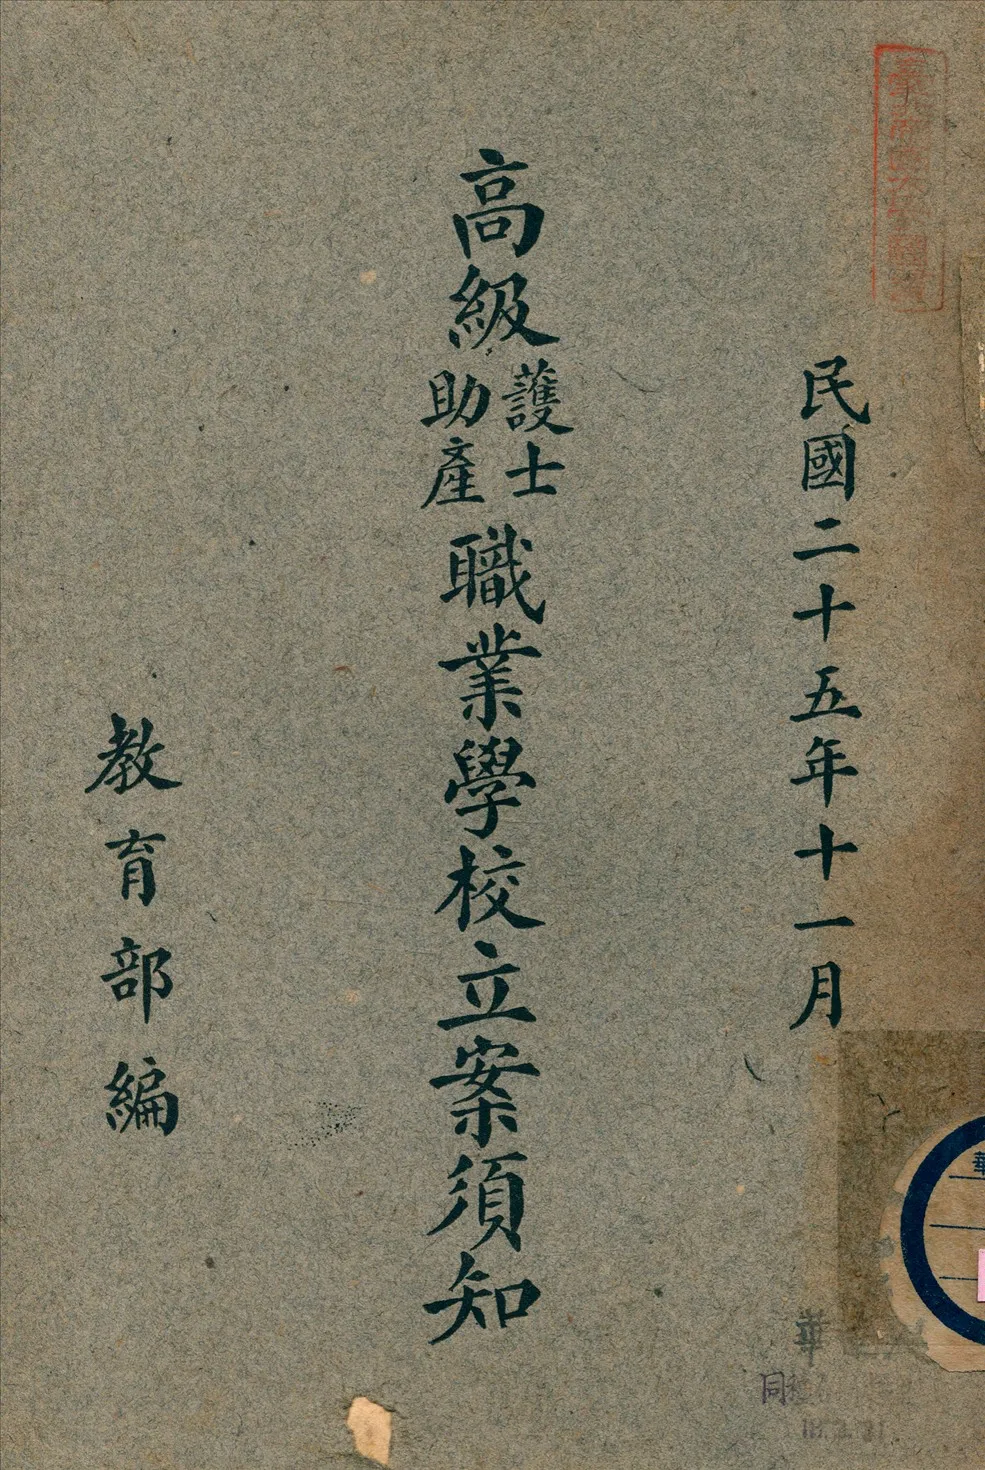 民國二十五年十一月
高級護士助產職業學校立案須知
教育部編
華
華
同